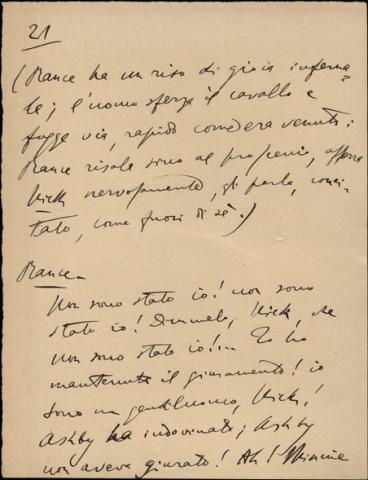 21
(Rance ha un riso di gioia inferna-
le; l'uomo sferza il cavallo e
fugge via, rapido com'era venuto;
Rance risale sino al proscenio, afferra
Nick nervosamente, gli parla, conci-
tato, come fuori di sè.)
Rance –
Non sono stato io! non sono
stato io! Dimmelo, Nick, che
non sono stato io!... Io ho
mantenuto il giuramento! io
sono un gentiluomo, Nick!
Ashby ha indovinato; Ashby
non aveva giurato! Ah! Minnie